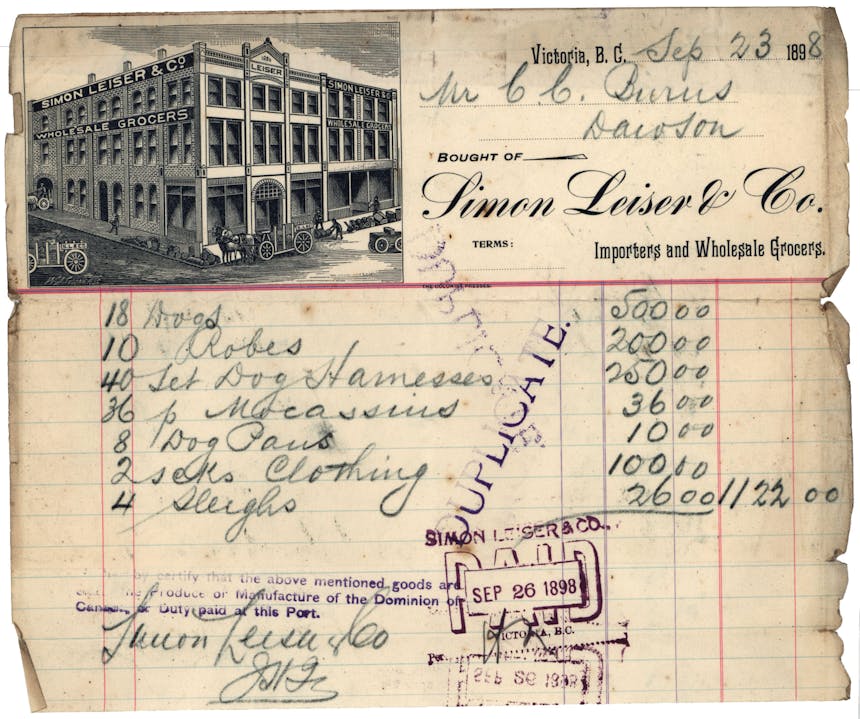 SIMON LEISER & CO
WHOLESALE GROCERS
LEISER
SIMON LEISER & CO
WHOLESALE GROCERS
Victoria, B. C. Sep 23 1898
Mr C. C. Burns
Dawson
BOUGHT OF
Simon Leiser & Co.
TERMS:
Importers and Wholesale Grocers.
THE COLONIST PRESSES.
18 Dogs 500 00
10 Robes 200 00
40 Set Dog Harnesses 250 00
36 p Mocassins 36 00
8 Dog Pans 10 00
2 scks Clothing 100 00
4 Sleighs 26 00 1122 00
DUPLICATE.
SIMON LEISER & CO.,
PAID
SEP 26 1898
VICTORIA, B.C.
certify that the above mentioned goods are
the Produce or Manufacture of the Dominion of
Canada, or Duty paid at this Port.
Simon Leiser & Co